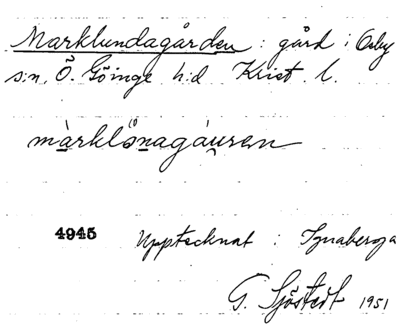 Marklundagården : gård i Osby
s:n, Ö. Göinge h:d Krist. l.
màrklö̀nagáu̯ren
4945 Upptecknat i Ignaberga
G. Sjöstedt 1951